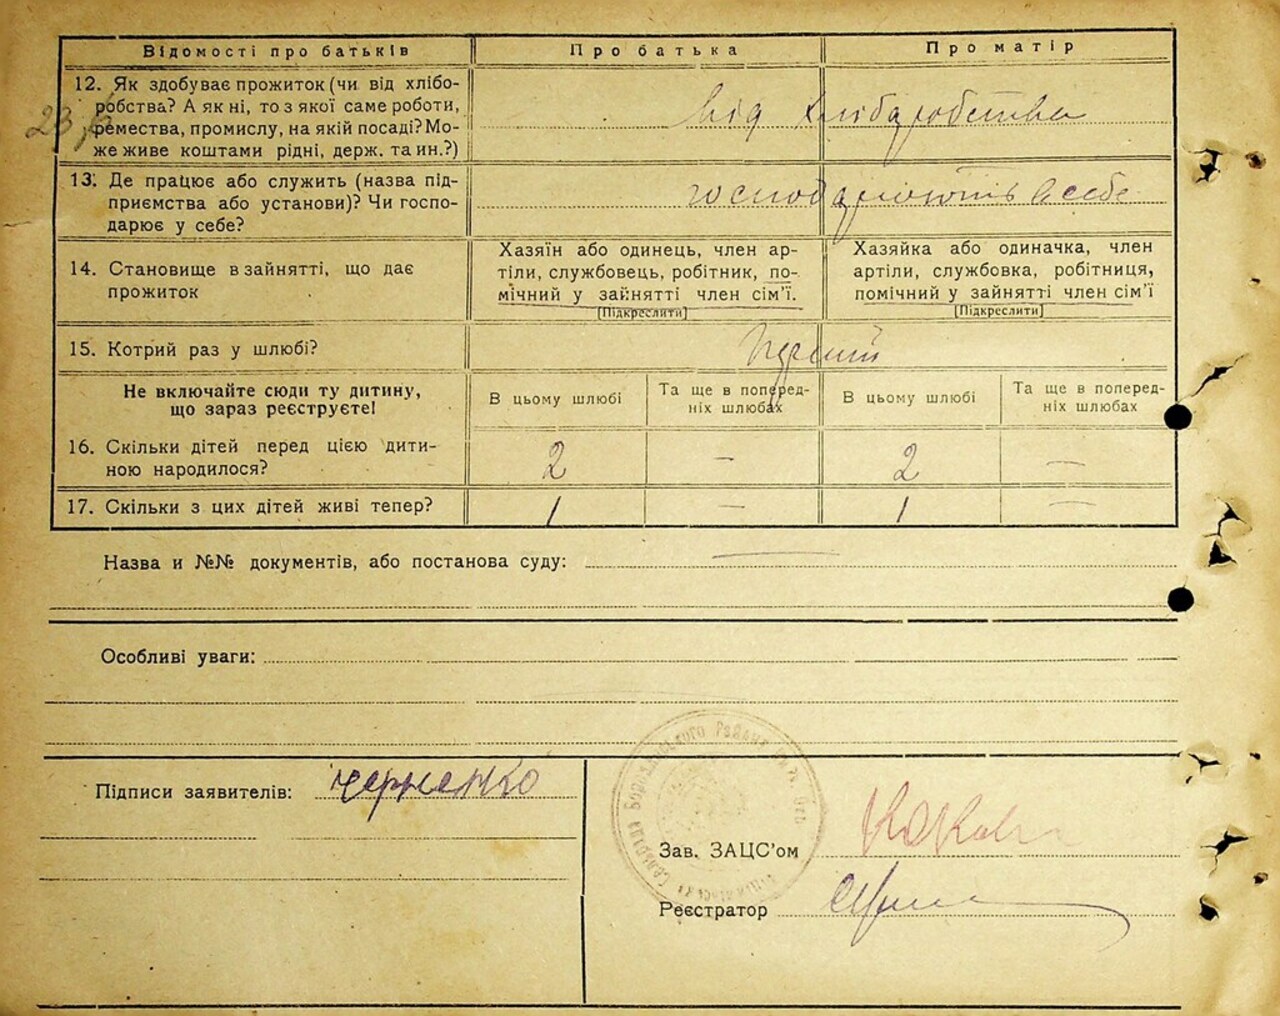 Відомості про батьків Про батька Про матір
12. Як здобуває прожиток (чи від хлібо-
робства? А як ні, то з якої саме роботи,
ремества, промислу, на якій посаді? Мо-
же живе коштами рідні, держ. та ин.?)
Від хліборобства
13. Де працює або служить (назва під-
приємства або установи)? Чи госпо-
дарює у себе?
господарюють в себе
14. Становище в зайнятті, що дає
прожиток
Хазяїн або одинець, член ар-
тіли, службовець, робітник, по-
мічний у зайнятті член сім'ї.
[Підкреслити]
Хазяйка або одиначка, член
артіли, службовка, робітниця,
помічний у зайнятті член сім'ї
[Підкреслити]
15. Котрий раз у шлюбі?
Не включайте сюди ту дитину,
що зараз реєструєте!
В цьому шлюбі
Та ще в поперед-
ніх шлюбах
В цьому шлюбі
Та ще в поперед-
ніх шлюбах
16. Скільки дітей перед цією дити-
ною народилося?
2 — 2 —
17. Скільки з цих дітей живі тепер? 1 — 1 —
Назва и №№ документів, або постанова суду: —
Особливі уваги:
Підписи заявителів: Черненко
Зав. ЗАЦС'ом
Реєстратор